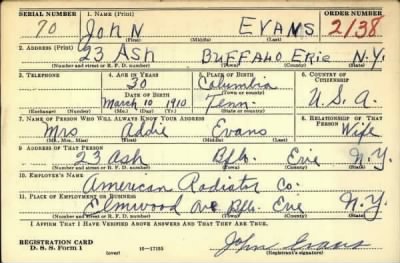 SERIAL NUMBER 1. NAME (Print) ORDER NUMBER
70 JOHN EVANS 2138
(First) (Middle) (Last)
2. ADDRESS (Print)
23 ASH BUFFALO ERIE N.Y.
(Number and street or R. F. D. number) (Town) (County) (State)
3. TELEPHONE 4. AGE IN YEARS 5. PLACE OF BIRTH 6. COUNTRY OF CITIZENSHIP
30 Columbia
DATE OF BIRTH (Town or county)
March 10 1910 Tenn. U.S.A.
(Exchange) (Number) (Mo.) (Day) (Yr.) (State or country)
7. NAME OF PERSON WHO WILL ALWAYS KNOW YOUR ADDRESS 8. RELATIONSHIP OF THAT PERSON
Mrs Addie Evans Wife
(Mr., Mrs., Miss) (First) (Middle) (Last)
9. ADDRESS OF THAT PERSON
23 Ash Bflo. Erie N.Y.
(Number and street or R. F. D. number) (Town) (County) (State)
10. EMPLOYER'S NAME
American Radiator Co.
11. PLACE OF EMPLOYMENT OR BUSINESS
Elmwood Ave Bflo. Erie N.Y.
(Number and street or R. F. D. number) (Town) (County) (State)
I AFFIRM THAT I HAVE VERIFIED ABOVE ANSWERS AND THAT THEY ARE TRUE.
REGISTRATION CARD
D. S. S. Form 1 (over) 16—17105 John Evans
(Registrant's signature)